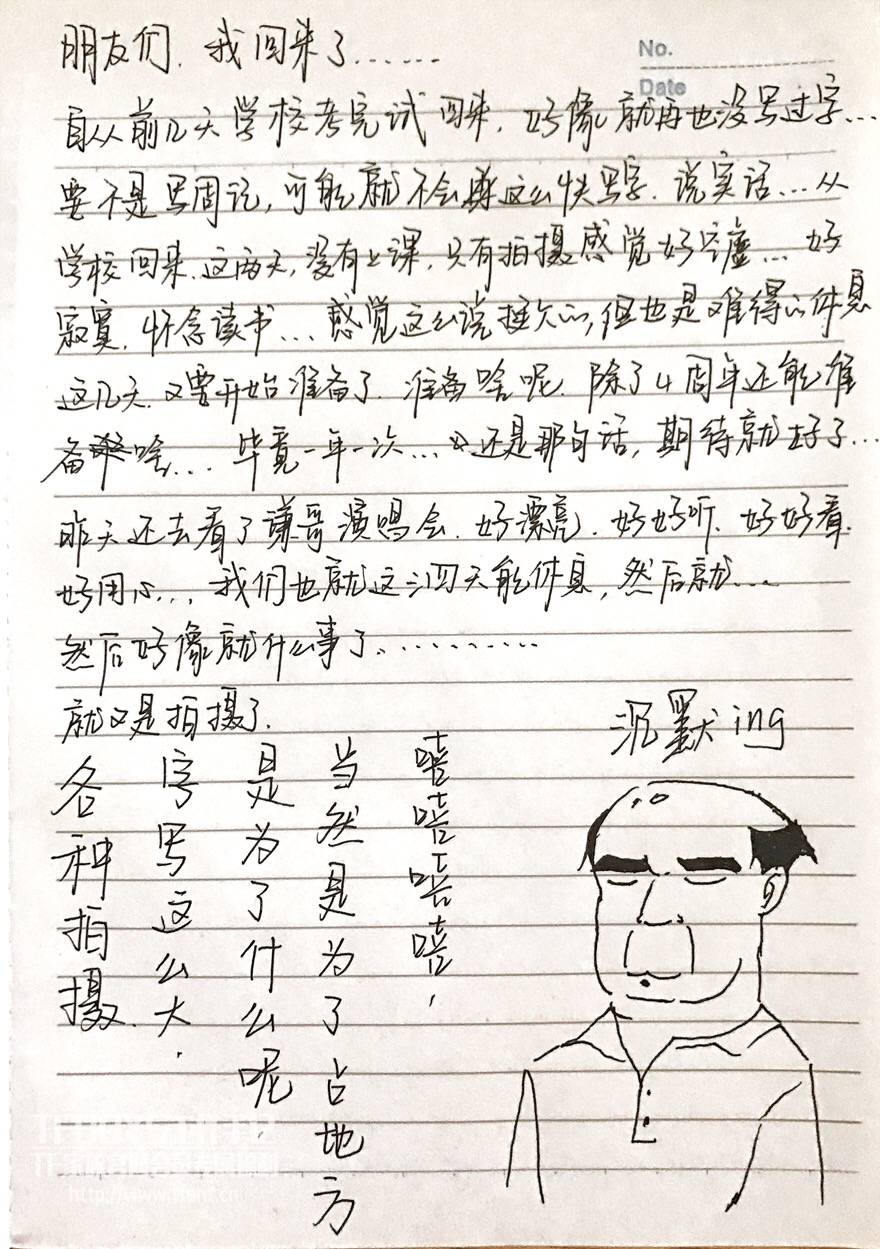 No.
Date
朋友们.我回来了......
自从前几天学校考完试回来,好像就再也没写过字...
要不是写周记,可能就不会这么快写字.说实话...从
学校回来.这两天,没有上课,只有拍摄感觉好空虚...好
寂寞.怀念读书...感觉这么说挺欠的,但也是难得的休息
这几天.又要开始准备了.准备啥呢.除了4周年还能准
备啥...毕竟一年一次...还是那句话,期待就好了...
昨天还去看了谦哥演唱会.好漂亮.好好听.好好看.
好用心...我们也就这三四天能休息,然后就...
然后好像就什么事了..........
就又是拍摄了.
各种拍摄.
字写这么大.
是为了什么呢.
当然是为了占地方
嘻嘻嘻嘻.
沉默ing